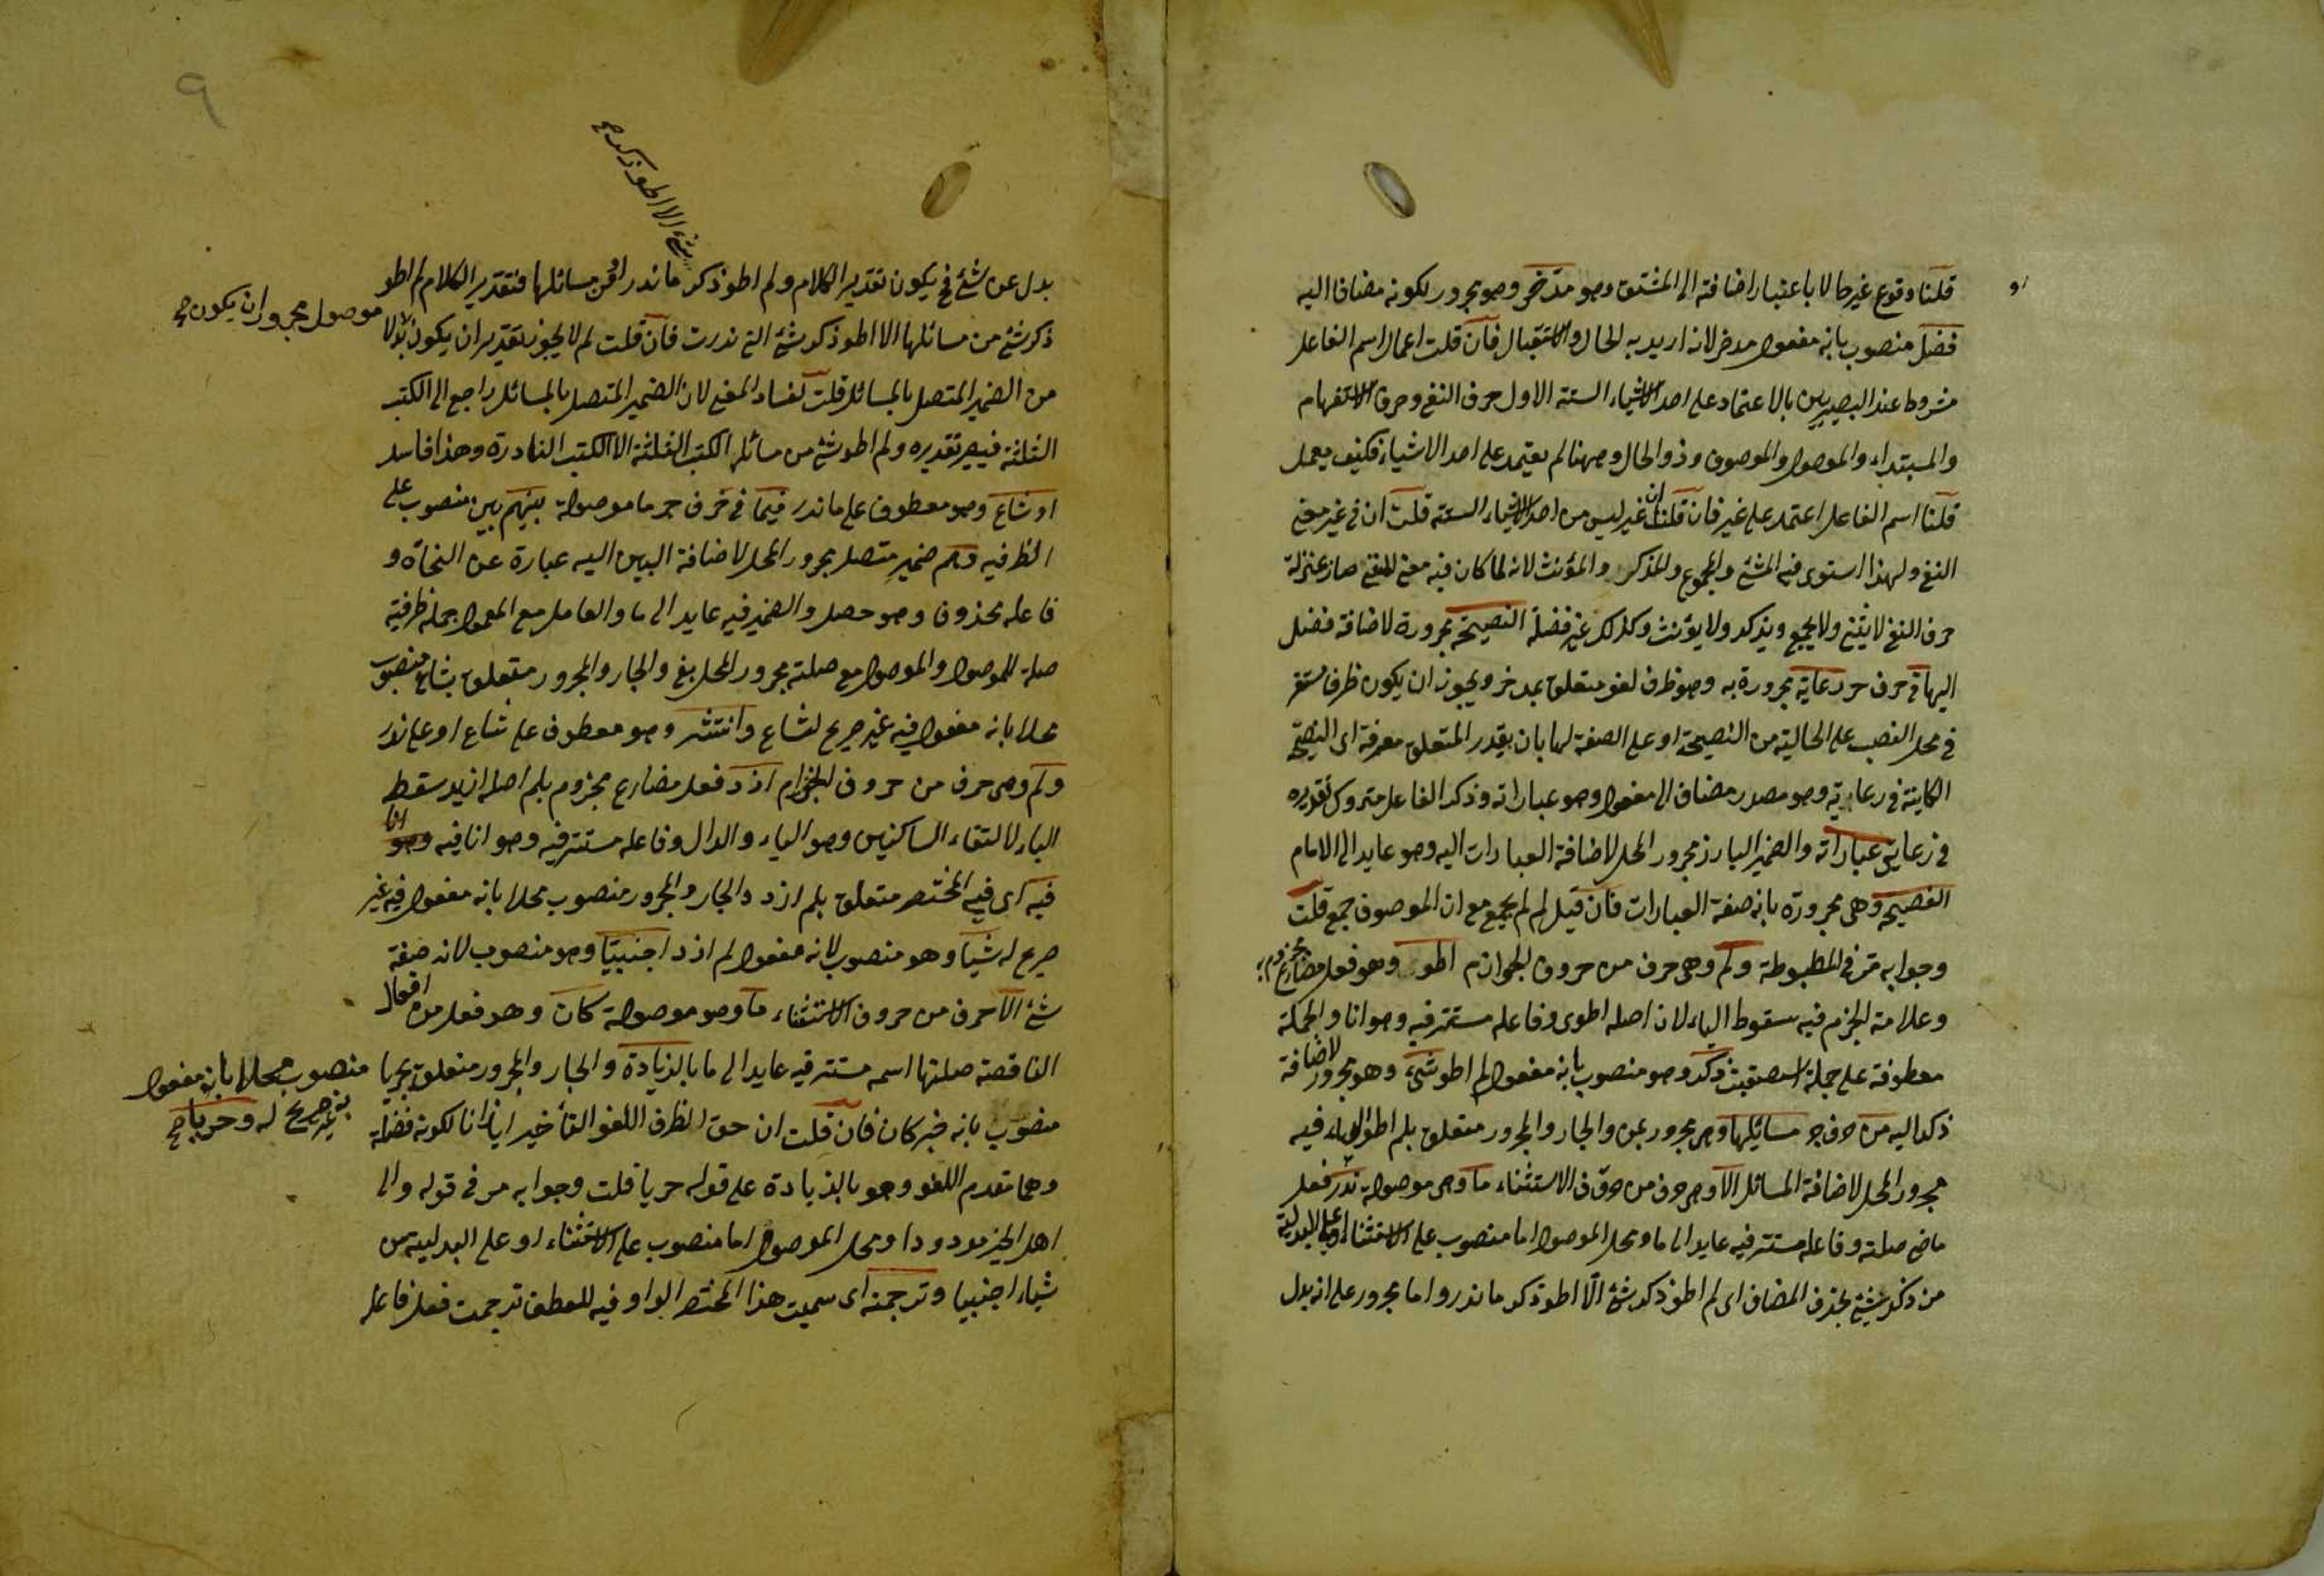 قلنا وقوع غير حالا باعتبار اضافته الى المشتق وهو مدخر وهو مجرور لكونه مضافا اليه
فضل منصوب بانه مفعول مدخر لانه اريد به الحال والاستقبال فان قلت اعمال اسم الفاعل
مشروط عند البصريين بالاعتماد على احد الاشياء الستة الاول حرف النفي وحرف الاستفهام
والمبتداء والموصول والموصوف وذو الحال وههنا لم يعتمد على احد الاشياء فكيف يعمل
قلنا اسم الفاعل اعتمد على غير فان قلنا ان غير ليس من احد الاشياء الستة قلت ان في غير معنى
النفي ولهذا استوى فيه المثنى والمجموع والمذكر والمؤنث لانه لما كان فيه معنى النفي صار بمنزلة
حرف النفي لا يثنى ولا يجمع ويذكر ولا يؤنث وكذلك غير فضلة النصيحة مجرورة لاضافة فضل
اليها في حرف جر رعاية مجرورة به وهو ظرف لغو متعلق بمدخر ويجوز ان يكون ظرف مستقر
في محل النصب على الحالية من النصيحة او على الصفة لها بان يقدر المتعلق معرفة اى النصيحة
الكاينة في رعايته وهو مصدر مضاف الى مفعوله وهو عباراته وذكر الفاعل متروك تقديره
في رعايتى عباراته والضمير البارز مجرور المحل لاضافة العبارات اليه وهو عايد الى الامام
الفصيحة وهي مجرورة بانه صفة العبارات فان قيل لم لم يجمع مع ان الموصوف جمع قلت
وجوابه مر في المطبوطة ولم وهي حرف من حروف الجوازم اطو وهو فعل مضارع مجزوم
وعلامة الجزم فيه سقوط الياء لان اصله اطوى وفاعله مستتر فيه وهو انا والجملة
معطوفة على جملة استصعبت ذكر وهو منصوب بانه مفعول لم اطو شيء وهو مجرور لاضافة
ذكر اليه من حرف جر مسائلها وهي مجرور بمن والجار والمجرور متعلق بلم اطو الهاء فيه
مجرور المحل لاضافة المسائل الا وهي حرف من حروف الاستثناء ما وهي موصولة ندر فعل
ماض صلته وفاعله مستتر فيه عايد الى ما ومحل الموصول اما منصوب على الاستثناء او على البدلية
من ذكر شيئ بحذف المضاف اى لم اطو ذكر شئ الا اطو ذكر ما ندر واما مجرور على انه بدل
او
٩
بدل عن شئ فح يكون تقدير الكلام ولم اطو ذكر ما ندر من مسائلها فتقدير الكلام لم اطو
شئ الا اطو ذكر صح
ذكر شئ من مسائلها الا اطو ذكر شئ التي ندرت فان قلت لم لا يجوز بتقدير ان يكون بدلا
موصول مجرور ان يكون صح
من الضمير المتصل بالمسائل قلت لفساد المعنى لان الضمير المتصل بالمسائل راجع الى الكتب
الثلثة فيصير تقديره ولم اطو شئ من مسائل الكتب الثلثة الا الكتب النادرة وهذا فاسد
او شاع وهو معطوف على ما ندر فيما في حرف جر ما موصولة بينهم بين منصوب على
الظرفيه وهم ضمير متصل مجرور المحل لاضافة البين اليه عبارة عن النحاة و
فاعله محذوف وهو حصل والضمير فيه عايد الى ما والعامل مع المعمول جملة ظرفية
صلة للموصول والموصول مع صلته مجرور المحل بفي والجار والمجرور متعلق بشاع منصوب
محلا بانه مفعول فيه غير صريح لشاع وانتشر وهو معطوف على شاع او على ندر
ولم وهي حرف من حروف الجوازم ازد فعل مضارع مجزوم بلم اصله ازيد سقط
الياء لالتقاء الساكنين وهو الياء والدال وفاعله مستتر فيه وهو انا فيه وهو انا
فيه اى في المختصر متعلق بلم ازد والجار والمجرور منصوب محلا بانه مفعول فيه غير
صريح له شيا وهو منصوب لانه مفعول لم ازد اجنبيا وهو منصوب لانه صفة
شئ الا حرف من حروف الاستثناء ما وهو موصولة كان وهو فعل من افعال
الناقصة صلتها اسمه مستتر فيه عايد الى ما بالزيادة والجار والمجرور متعلق بحريا
منصوب محلا بانه مفعول
به غير صريح له وحريا صح
منصوب بانه خبر كان فان قلت ان حق الظرف اللغو التأخير ايذانا لكونه فضلة
وهما تقدم اللغو وهو بالزيادة على قوله حريا قلت وجوابه مر في قوله والى
اهل الخير مودودا ومحل الموصول اما منصوب على الاستثناء او على البدلية من
شياء اجنبيا وترجمته اى سميت هذا المختصر الواو فيه للعطف ترجمت فعل فاعل